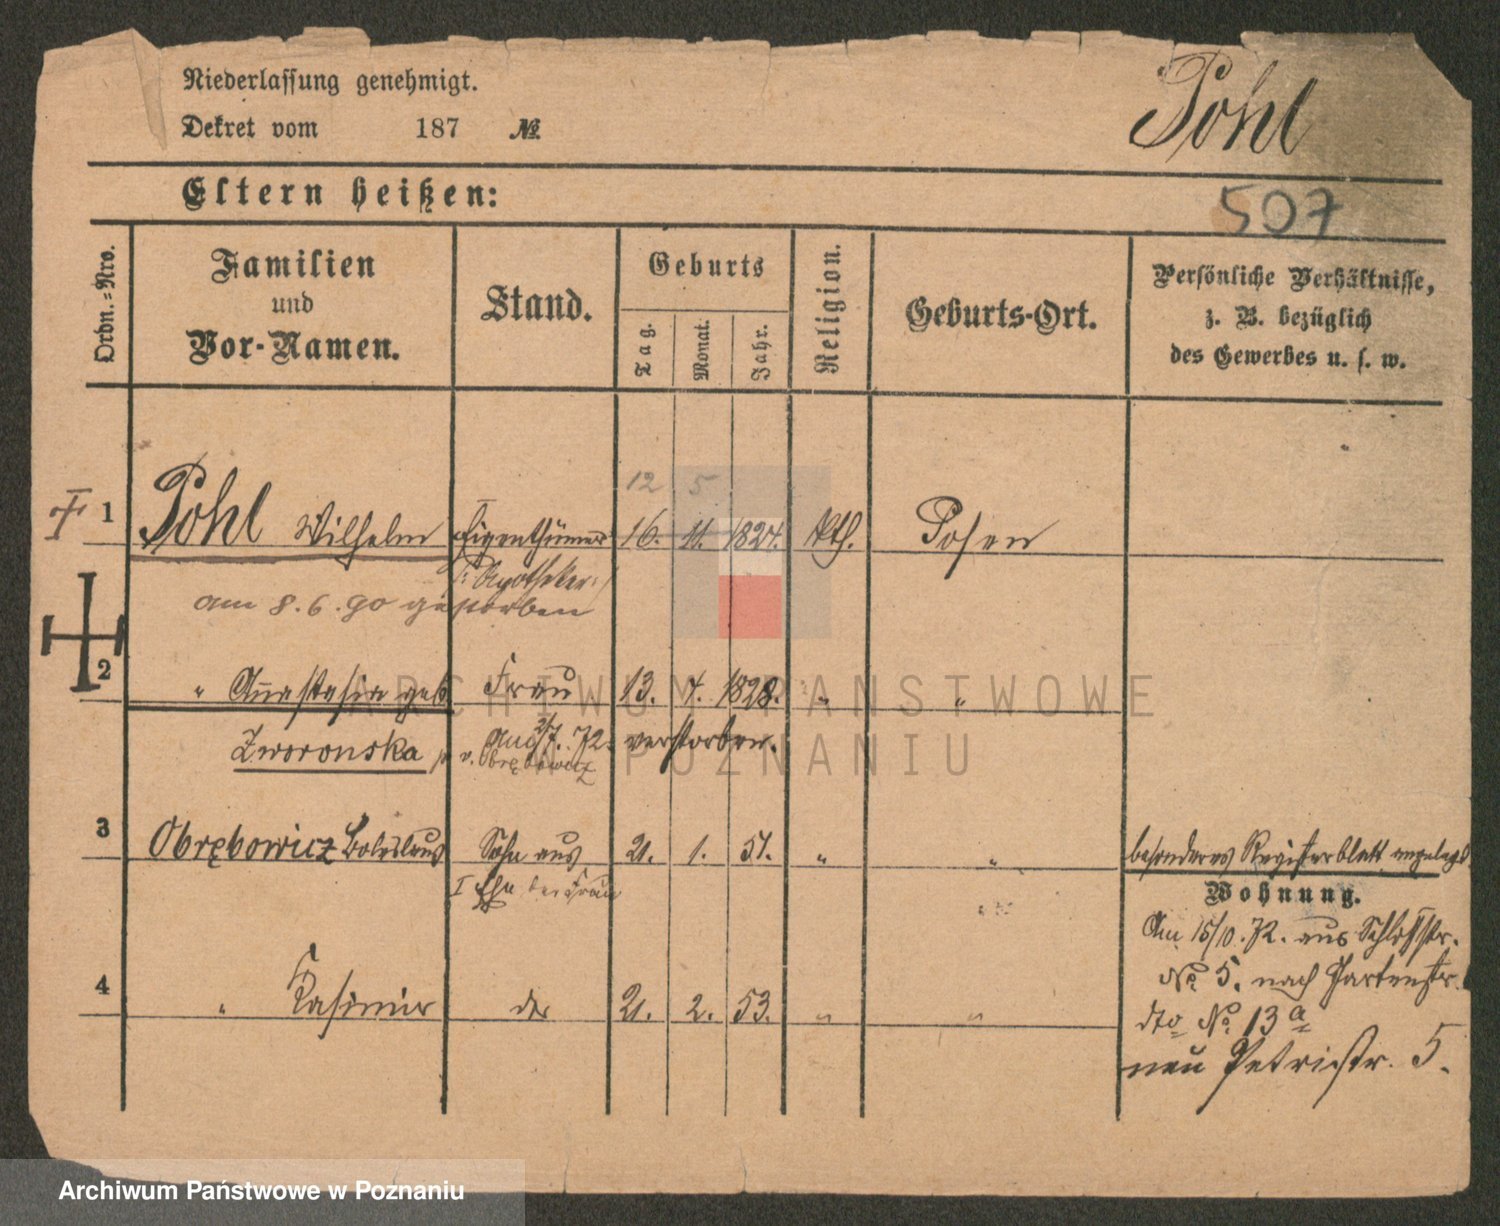 Niederlassung genehmigt.
Dekret vom 187 №
Pohl
Eltern heißen:
507
Ordn.-Nro.
Familien
und
Vor-Namen.
Stand.
Geburts
Tag.
Monat.
Jahr.
Religion.
Geburts-Ort.
Persönliche Verhältnisse,
z. B. bezüglich
des Gewerbes u. s. w.
12 5
1 Pohl Wilhelm Eigenthümer 16. 11. 1824. kth. Posen
/: Apotheker :/
am 8.6.90 gestorben
2 " Anastasia geb Frau 13. 4. 1828. " "
Zworonska v. Obrębowicz
2/7. 72. verstorben.
3 Obrębowicz Boleslaus Sohn aus 21. 1. 51. " " besonderes Registerblatt angelegt
I Ehe der Frau
Wohnung.
Am 15/10. 72. aus Schloßstr.
No 5. nach Gartenstr.
4 " Kasimir do 21. 2. 53. " "
dto No. 13 a
neu Petristr. 5.
ARCHIWUM PAŃSTWOWE
W POZNANIU
Archiwum Państwowe w Poznaniu